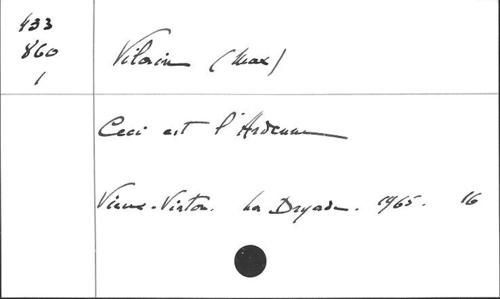 433
860
1
Vilain (Max)
Ceci est l'Ardenne
Vieux-Virton. La Dryade. 1965. 16